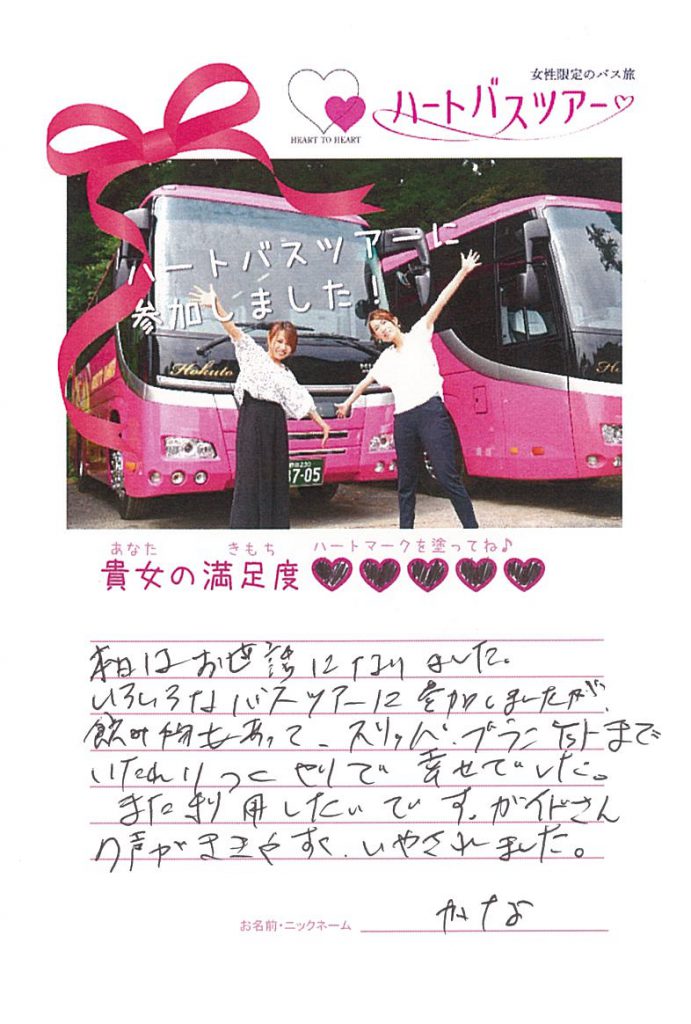 女性限定のバス旅
ハートバスツアー
HEART TO HEART
ハートバスツアーに
参加しました！
Hokuto
Hokuto
37-05
あなた きもち ハートマークを塗ってね♪
貴女の満足度
本日はお世話になりました。
いろいろなバスツアーに参加しましたが、
飲み物もあって、スリッパ、ブランケットまで
いたれりつくせりで幸せでした。
また利用したいです。ガイドさん
の声がききやすく、いやされました。
お名前・ニックネーム かなよ